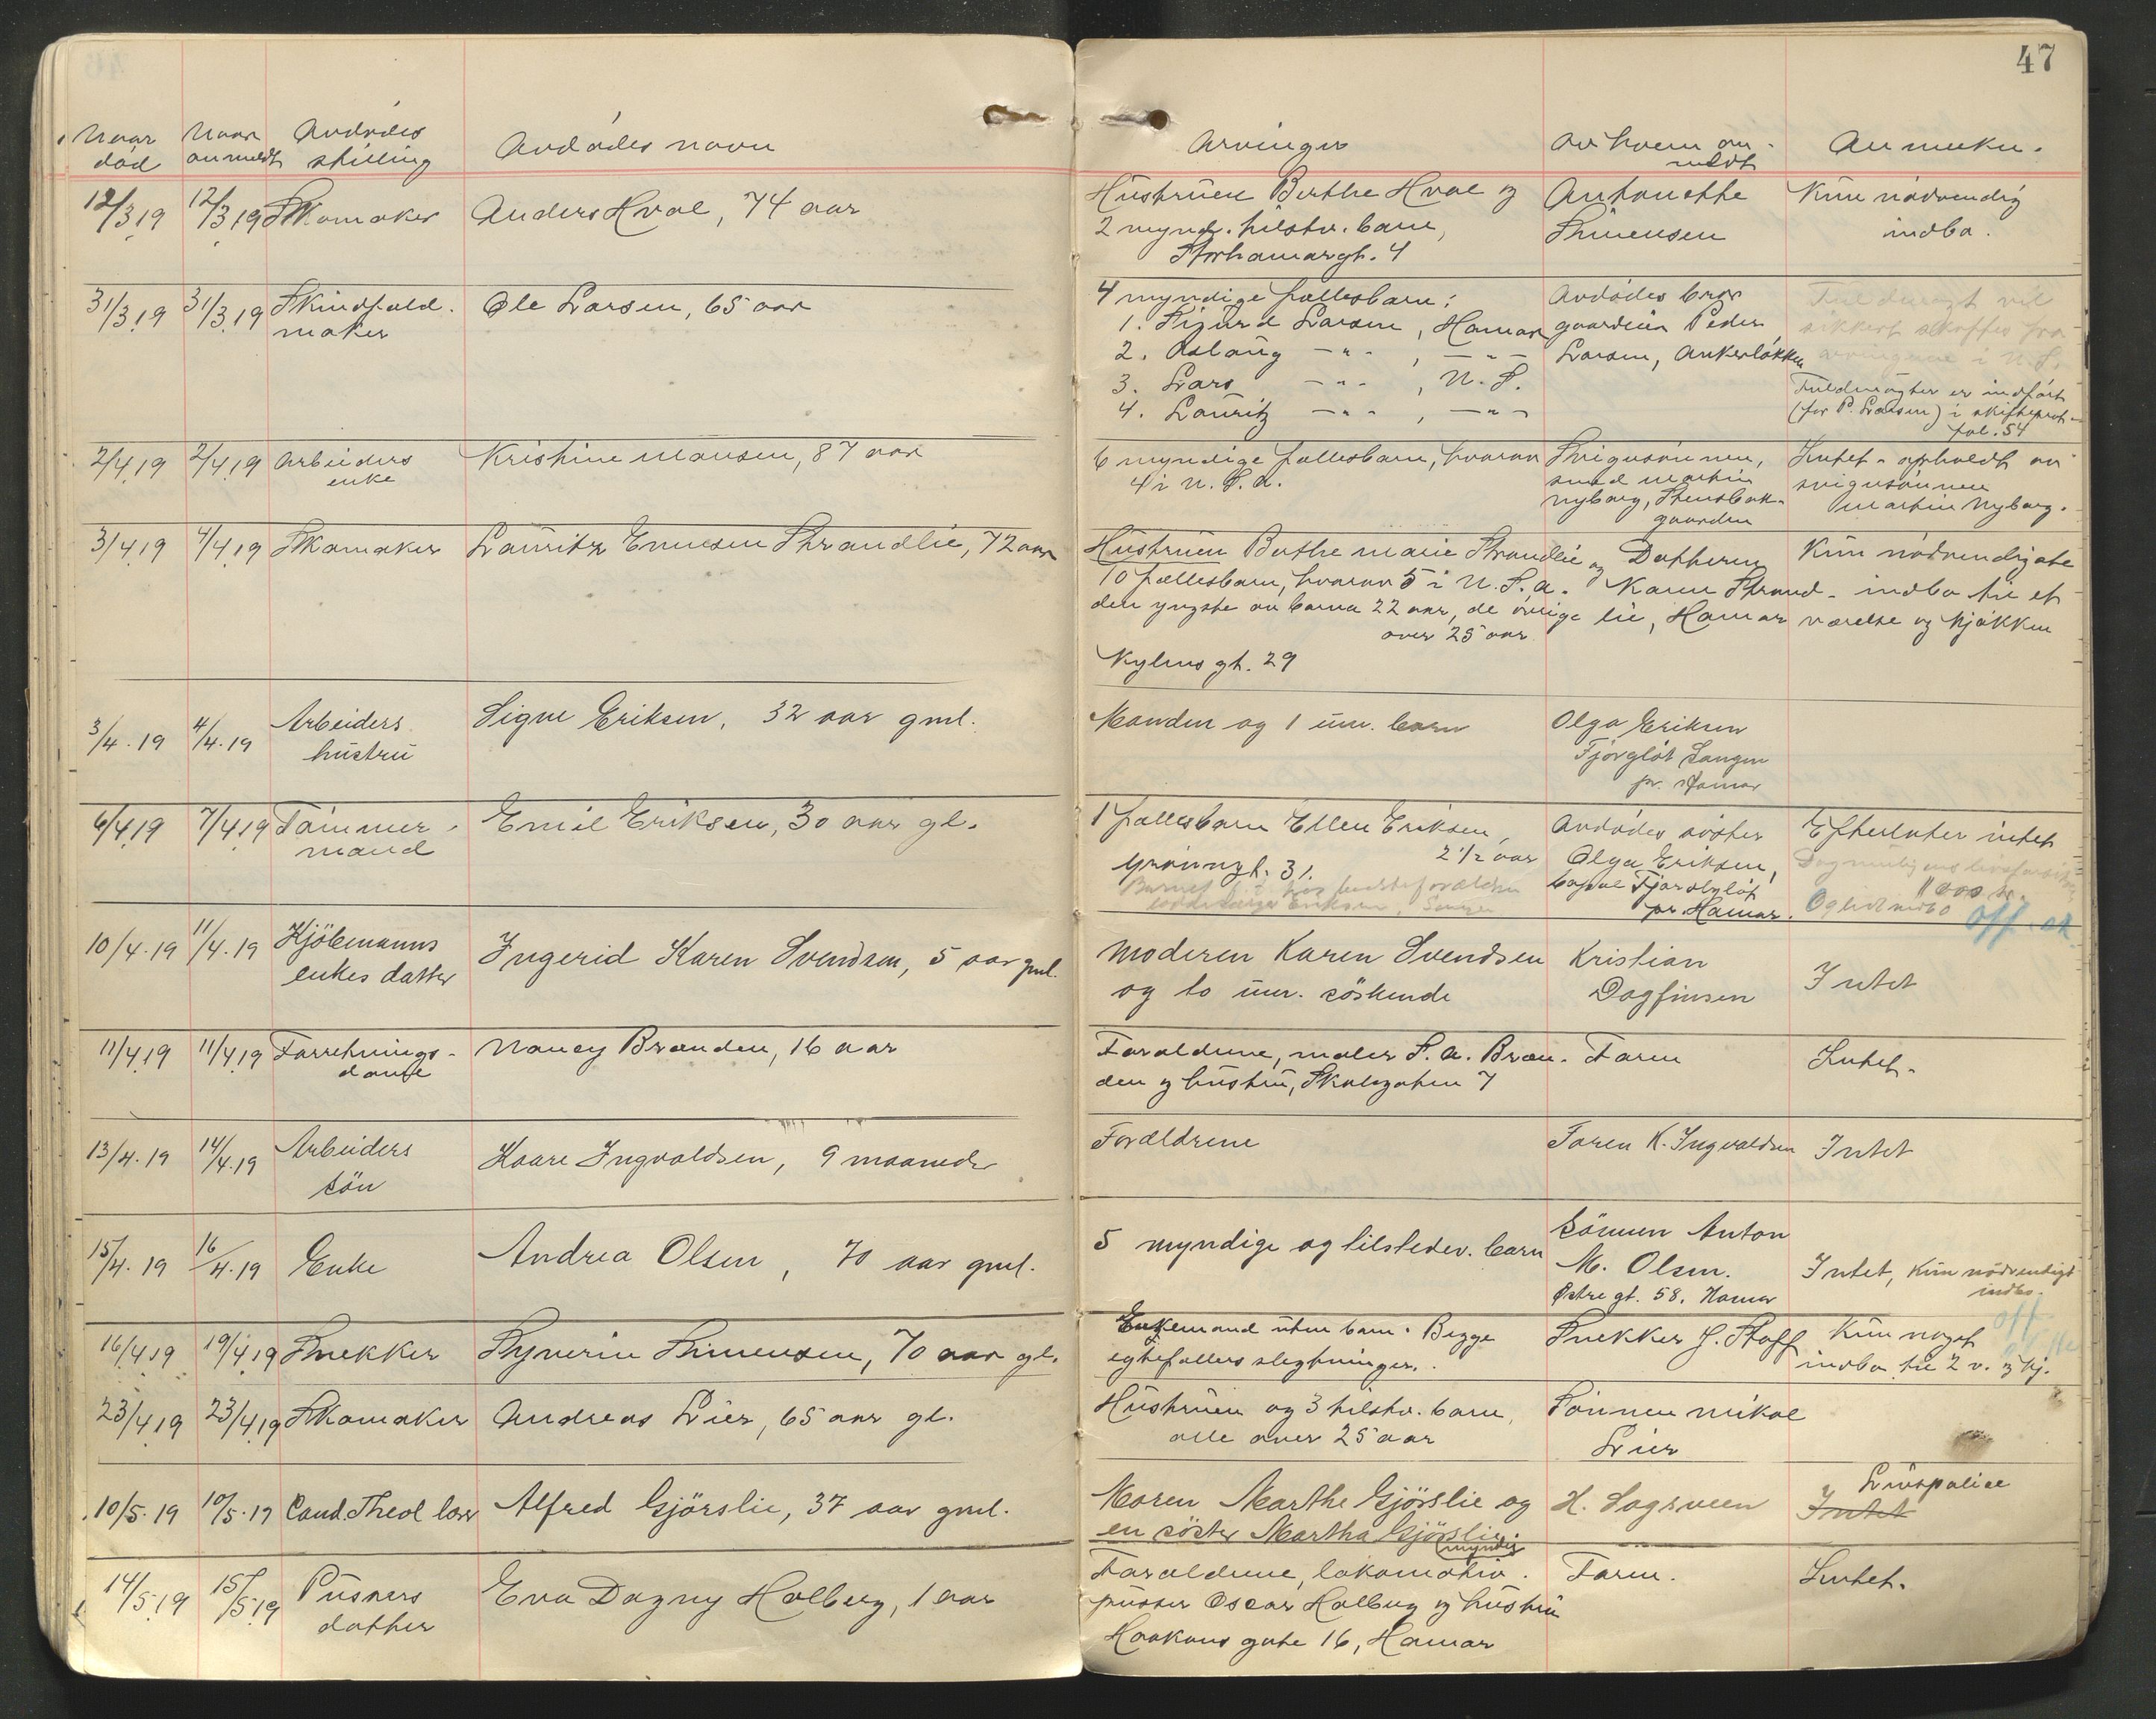 47
Naar død
Naar anmeldt
Avdødes stilling
Avdødes navn
Arvinger
Av hvem anmeldt
Anmerkn.
12/3 19 12/3 19 Skomaker Anders Hval, 74 aar
Hustruen Berthe Hval og
2 mynd. tilstv. barn,
Storhamargt. 4
Antonette
Simensen
Kun nødvendig
indbo.
31/3 19 31/3 19 Skindfeld-
maker
Ole Larsen, 65 aar
4 myndige fællesbarn:
1. Sigurd Larsen, Hamar
2. Aslaug -"- , -"-
3. Lars -"- , N. S.
4. Lauritz -"- , -"-
Avdødes bror
gaardeier Peder
Larsen, Ankerløkken
Fuldmagt vil
sikkert skaffes fra
arvingene i N. S.
Fuldmagter er indført
(for P. Larsen) i skifteprot.
fol. 54
2/4 19 2/4 19 Arbeiders
enke
Kristine Mansen, 87 aar
6 myndige fællesbarn, hvorav
4 i N. S. A.
Svigersønnen,
smed Martin
Nyborg, Stensbak-
gaarden
Intet - opholdt av
svigersønnen
Martin Nyborg.
3/4 19 4/4 19 Skomaker Lauritz Ennesen Strandlie, 72 aar
Hustruen Berthe Marie Strandlie og
10 fællesbarn, hvorav 5 i N. S. A.
den yngste av barna 22 aar, de øvrige
over 25 aar
Kylnsgt. 29
Datteren
Karen Strand-
lie, Hamar
Kun nødvendigste
indbo til et
værelse og kjøkken
3/4. 19 4/4. 19 Arbeiders
hustru
Signe Eriksen, 32 aar gml.
Manden og 1 um. barn
Olga Eriksen
Fjorgløt Vangen
pr. Hamar
6/4 19 7/4 19 Tømmer-
mand
Emil Eriksen, 30 aar gl.
1 fællesbarn Ellen Eriksen,
2 1/2 aar
Grønnegt. 31.
Barnet hos bedsteforældre
Eriksen,
Avdødes søster
Olga Eriksen,
pr Hamar.
Efterlater intet
Dog muligens livsforsikr.
1000 kr.
Og litt indbo
off. sk.
10/4. 19 11/4. 19 Kjøbmanns
enkes datter
Ingerid Karen Svendsen, 5 aar gml.
Moderen Karen Svendsen
og to um. söskende
Kristian
Dagfinsen
Intet
11/4 19 11/4 19 Forretnings-
dame
Nancy Brænden, 16 aar
Forældrene, maler S. A. Bræn-
den og hustru, Skolegaten 7
Faren
Intet.
13/4. 19 14/4. 19 Arbeiders
sön
Kaare Ingvaldsen, 9 maaneder
Forældrene
Faren K. Ingvaldsen
Intet
15/4. 19 16/4. 19 Enke Andrea Olsen, 70 aar gml.
5 myndige og tilstedev. barn
Sönnen Anton
M. Olsen.
Østre gt. 58. Hamar
Intet, kun nödvendigt
indbo.
16/4 19 19/4 19 Snekker Syverin Simensen, 70 aar gl.
Enkemand uten barn. Begge
egtefællers slegtninger.
Snekker J. Staff
off
Kun noget
indbo til 2 v. og kj.
23/4 19 23/4 19 Skomaker Andreas Lier, 65 aar gl.
Hustruen og 3 tilstv. barn,
alle over 25 aar
Sønnen Mikal
Lier
10/5. 19 10/5. 19 Cand. Theol lærer Alfred Gjörslie, 37 aar gml.
Moren Marthe Gjörslie og
en söster Martha Gjörslie
myndig
H. Sagsveen
Livspolice
Intet
14/5 19 15/5 19 Pussers
datter
Eva Dagny Holberg, 1 aar
Forældrene, lokomotiv-
pusser Oscar Holberg og hustru
Haakons gate 16, Hamar
Faren.
Intet.